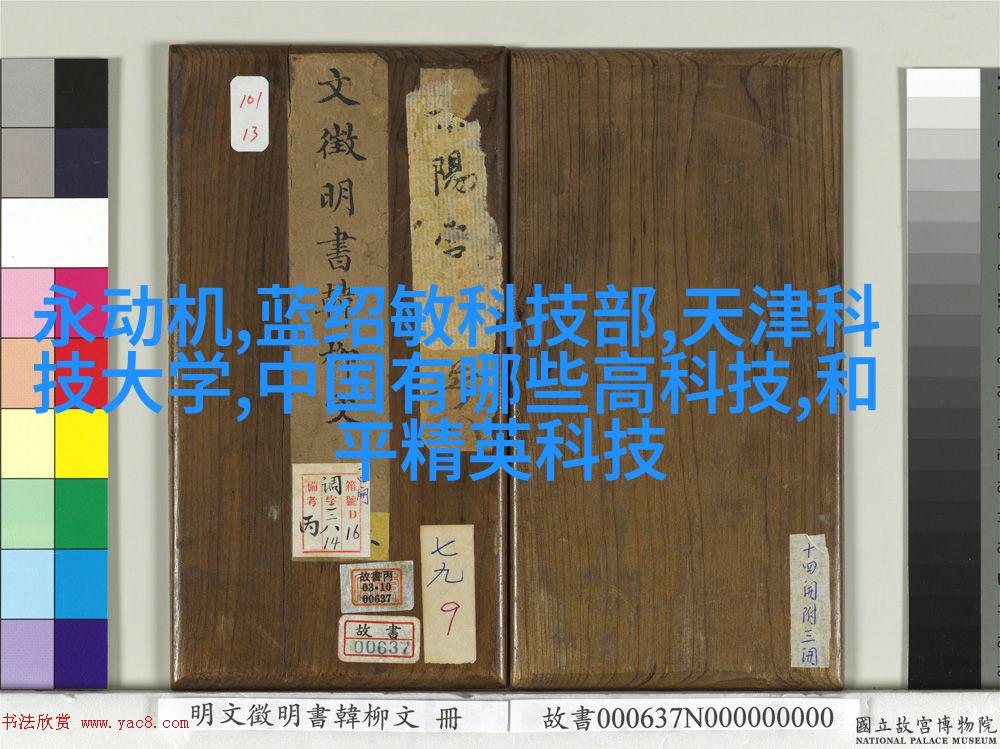 永动机,蓝绍敏科技部,天津科
技大学,中国有哪些高科技,和
平精英科技
文徵明書韓柳文
陽宮
101
13
箱號D
16
調字三八
14
備考
丙
故書丙
03-10
00637
故書
00637
七九
9
十四開附三開
明文徵明書韓柳文 冊
故書000637N000000000
國立故宮博物院
NATIONAL PALACE MUSEUM
书法欣赏 www.yac8.com